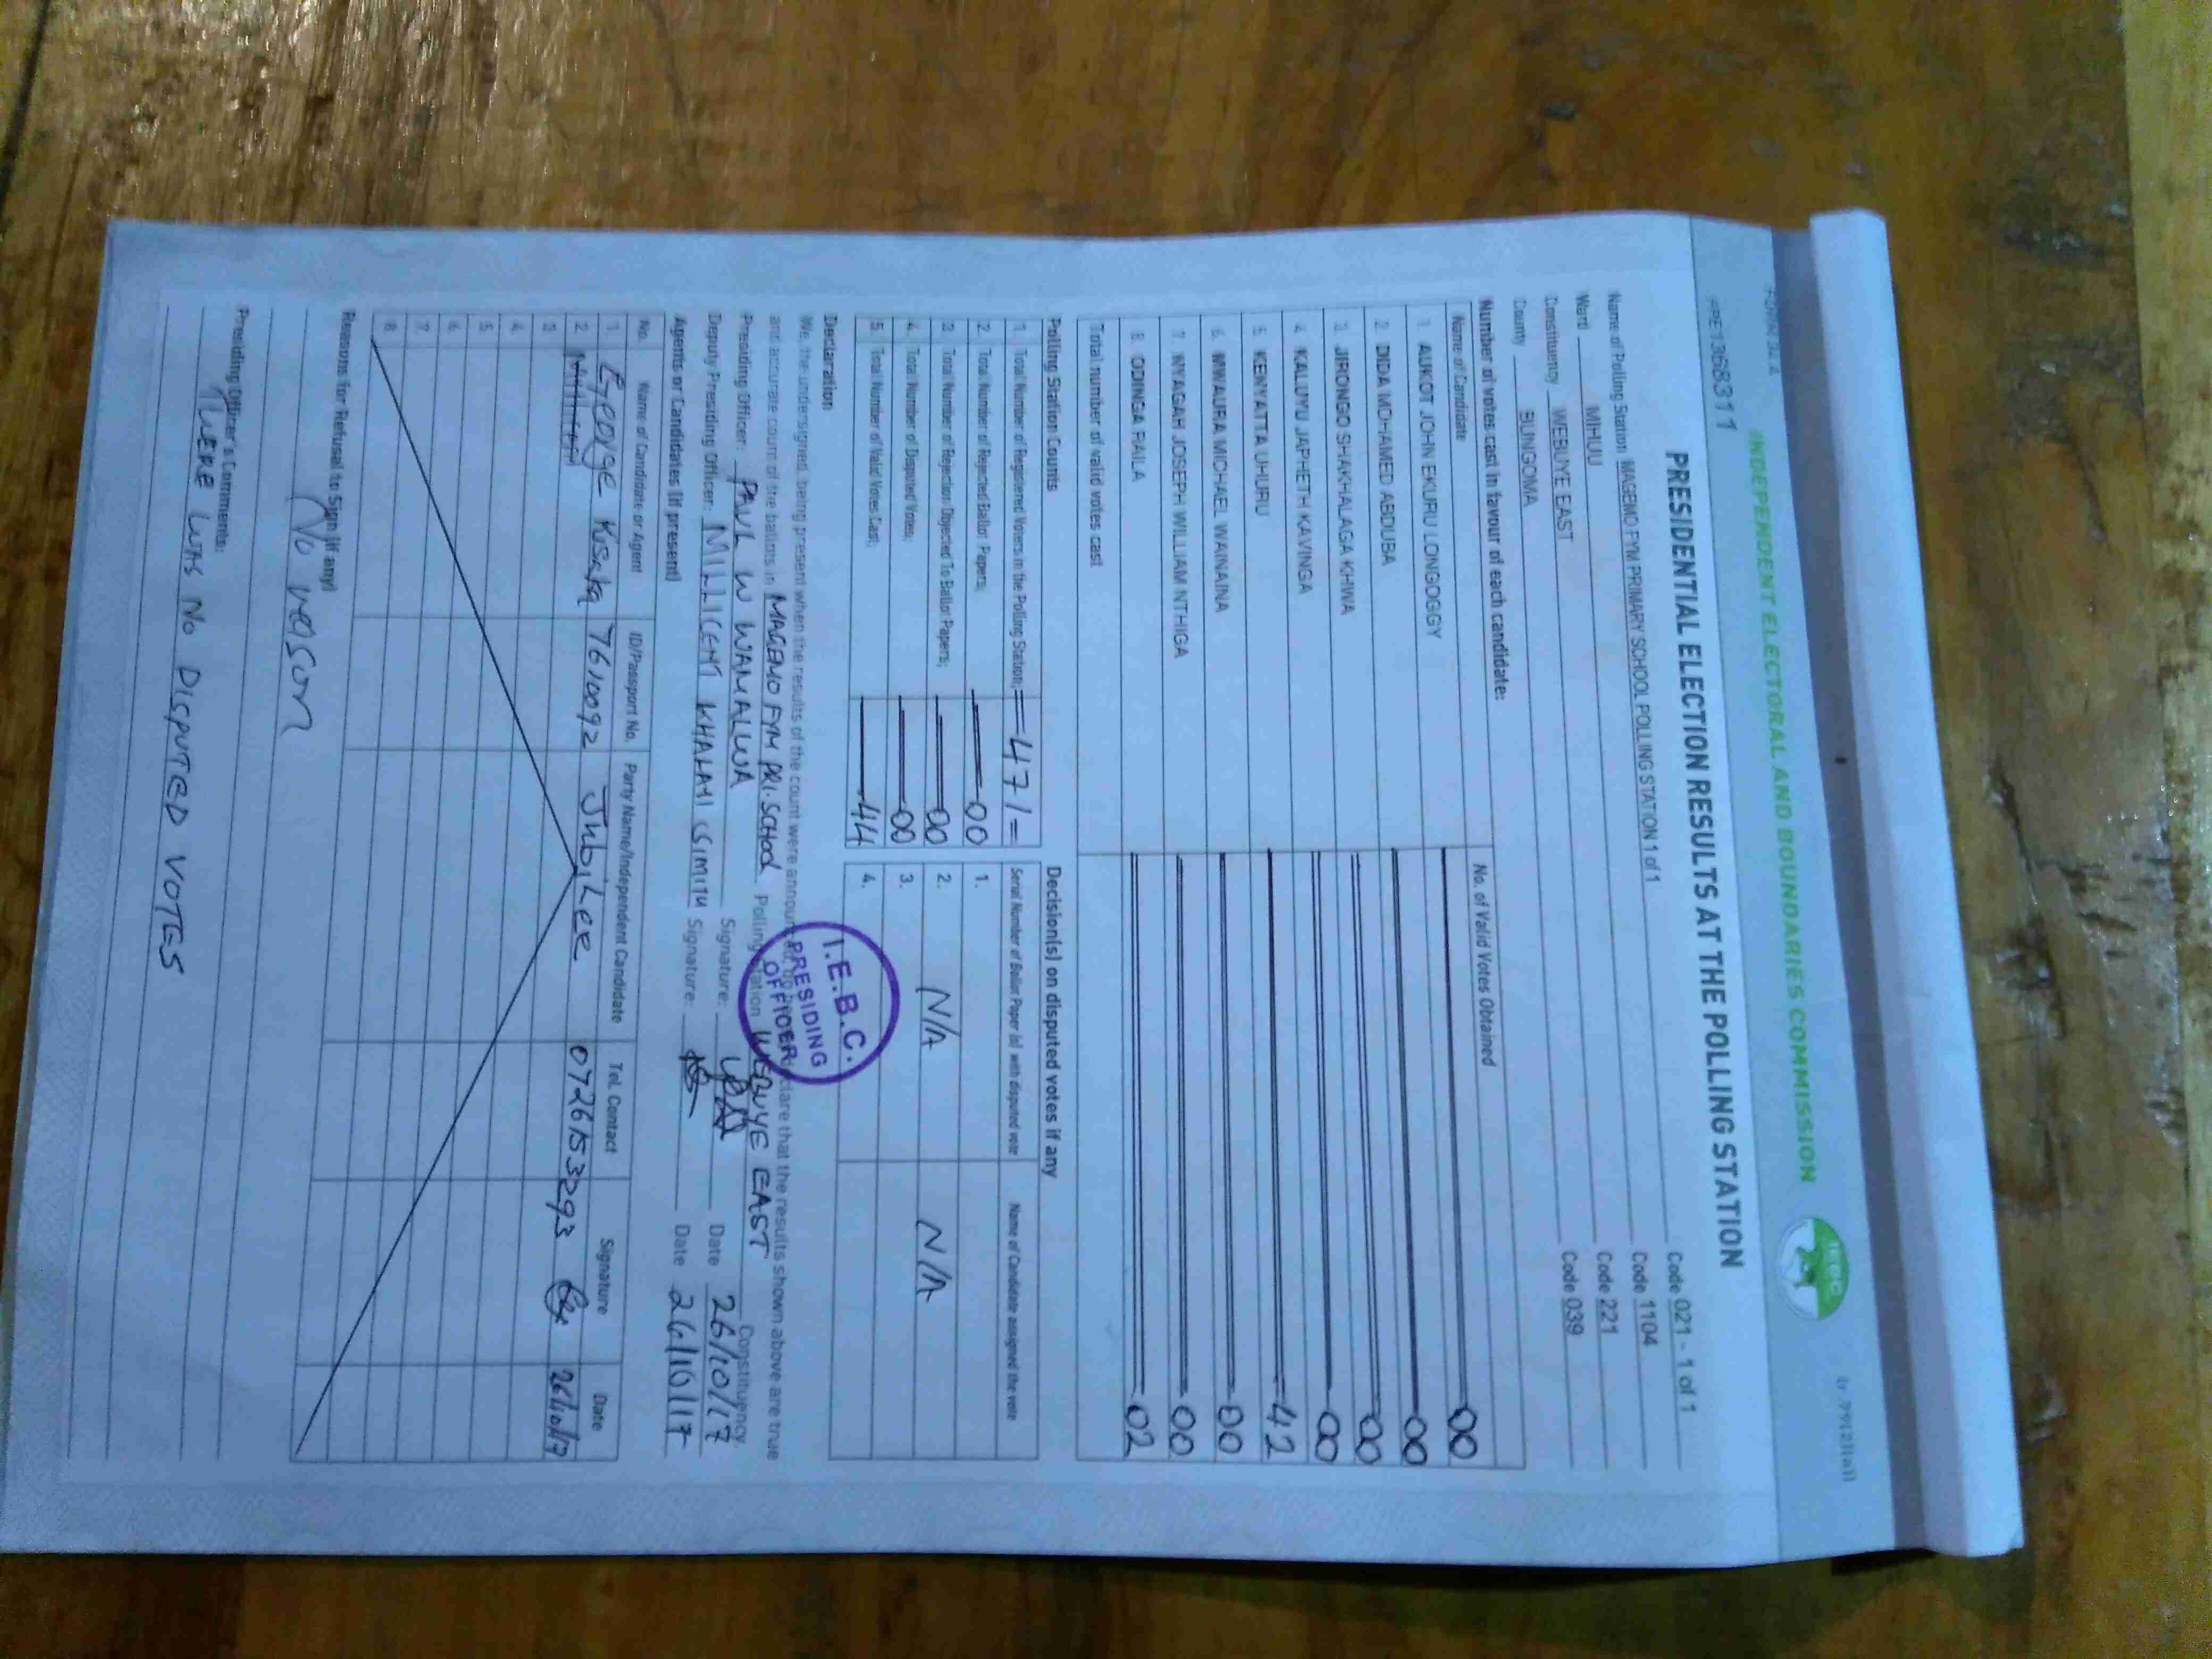 FORM 34A
INDEPENDENT ELECTORAL AND BOUNDARIES COMMISSION
IEBC
PRE1368311
PRESIDENTIAL ELECTION RESULTS AT THE POLLING STATION
Name of Polling Station MAGEMO FYM PRIMARY SCHOOL POLLING STATION 1 of 1 Code 021 - 1 of 1
Ward MIHUU Code 1104
Constituency WEBUYE EAST Code 221
County BUNGOMA Code 039
Number of votes cast in favour of each candidate:
Name of Candidate No. of Valid Votes Obtained
1. AUKOT JOHN EKURU LONGOGGY 00
2. DIDA MOHAMED ABDUBA 00
3. JIRONGO SHAKHALAGA KHWA 00
4. KALUYU JAPHETH KAVINGA 00
5. KENYATTA UHURU 42
6. MWAURA MICHAEL WAINAINA 00
7. NYAGAH JOSEPH WILLIAM NTHIGA 00
8. ODINGA RAILA 02
Total number of valid votes cast
Polling Station Counts Decision(s) on disputed votes if any
1. Total Number of Registered Voters in the Polling Station; =471=
2. Total Number of Rejected Ballot Papers; 00
3. Total Number of Rejection Objected To Ballot Papers; 00
4. Total Number of Disputed Votes; 00
5. Total Number of Valid Votes Cast; 44
Serial Number of Ballot Paper (s) with disputed vote Name of Candidate assigned the vote
1.
2. N/A N/A
3.
4.
Declaration
We, the undersigned, being present when the results of the count were announced, do hereby declare that the results shown above are true
and accurate count of the ballots in MAGEMO FYM PRI. SCHOOL Polling Station WEBUYE EAST Constituency.
Presiding Officer: PAUL W WAMALWA Signature: Date 26/10/17
Deputy Presiding Officer: MILLICENT KHALAYI SIMIYU Signature: Date 26/10/17
I.E.B.C.
PRESIDING
OFFICER
Agents or Candidates (if present)
No. Name of Candidate or Agent ID/Passport No. Party Name/Independent Candidate Tel. Contact Signature Date
1. George Kisaka 7610092 Jubilee 0726153293 26/10/17
2.
3.
4.
5.
6.
7.
8.
Reasons for Refusal to Sign (if any)
No reason
Presiding Officer's Comments:
THERE WAS NO DISPUTED VOTES